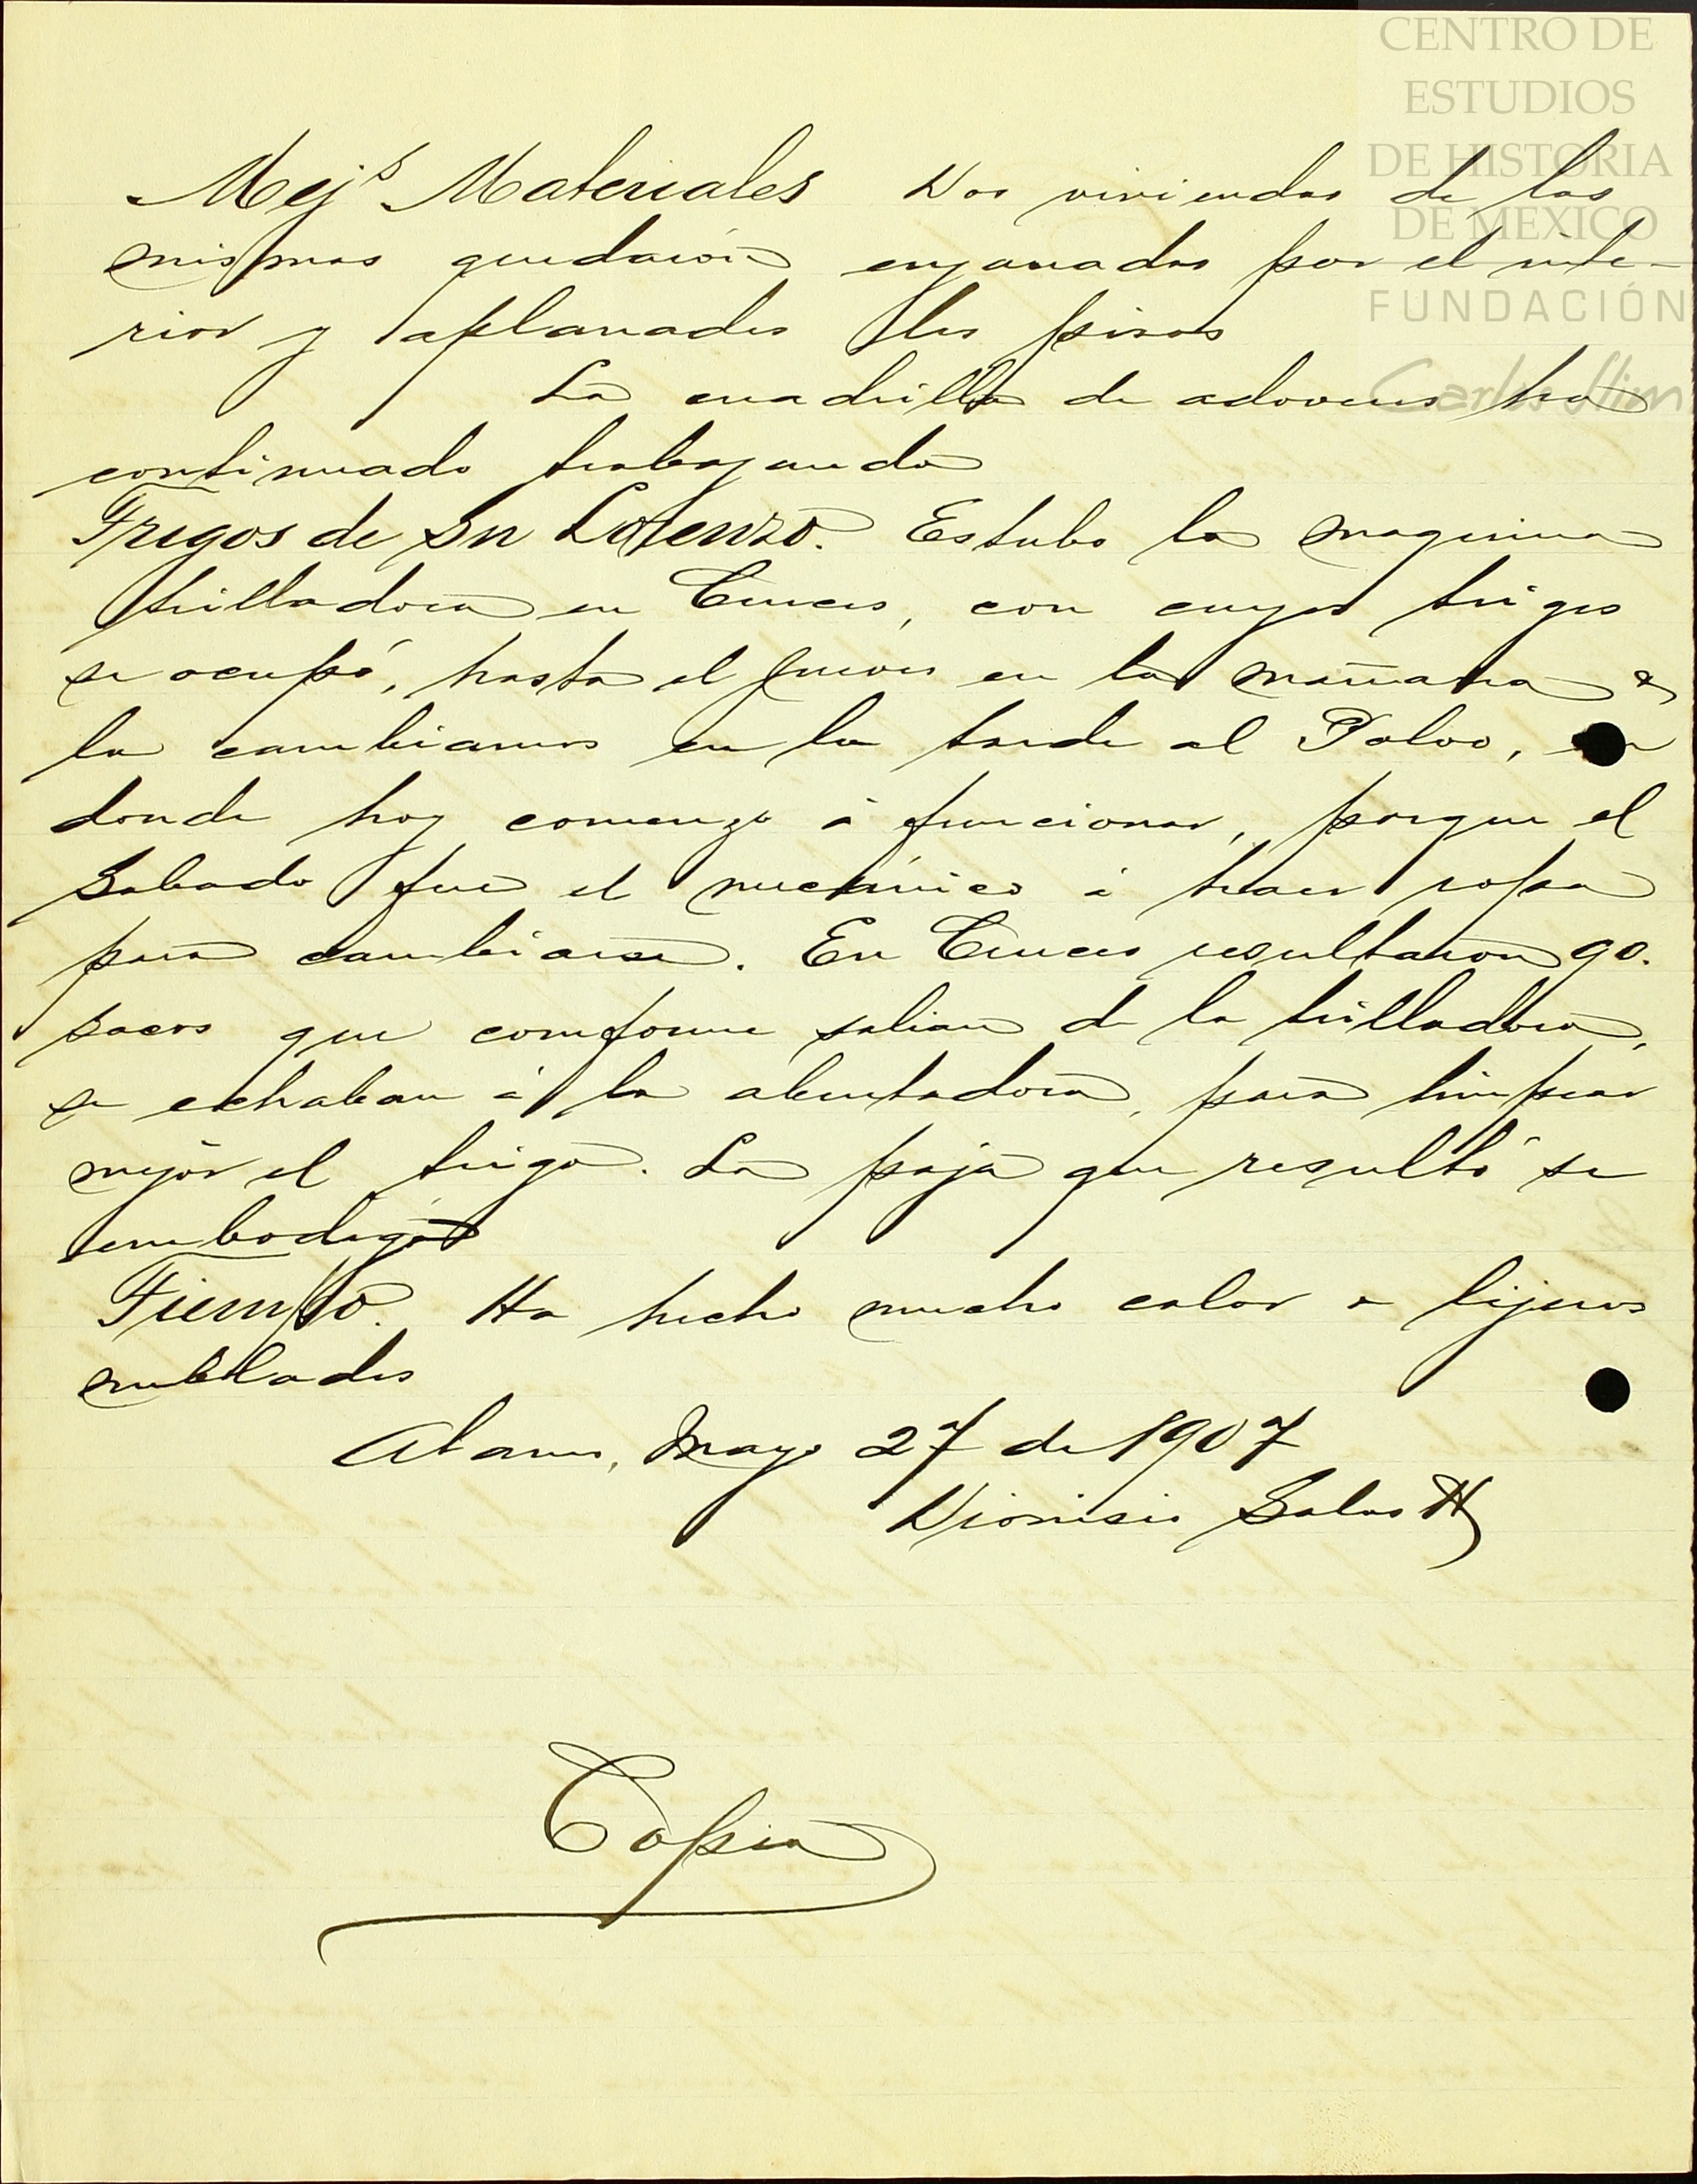 CENTRO DE
ESTUDIOS
DE HISTORIA
DE MEXICO
FUNDACIÓN
Carlos Slim
Mejs Materiales Dos viviendas de las
mismas quedaron enjarradas por el inte-
rior y aplanados los pisos
La cuadrilla de adoveros ha
continuado trabajando
Trigos de Sn Lorenzo. Estubo la maquina
trilladora en Cruces, con cuyos trigos
se ocupó, hasta el Jueves en la mañana &
la cambiamos en la tarde al Polvo, en
donde hoy comenzo á funcionar, porque el
Sabado fue el mecánico á traer ropa
para cambiarse. En Cruces resultaron 90.
sacos que comforme salian de la trilladora,
se echaban á la abentadora, para limpiar
mejor el trigo. La paja que resultó se
embodegó
Tiempo. Ha hecho mucho calor o lijeros
nublados
Alamo, Mayo 27 de 1907
Dionisio Salas H
Copia